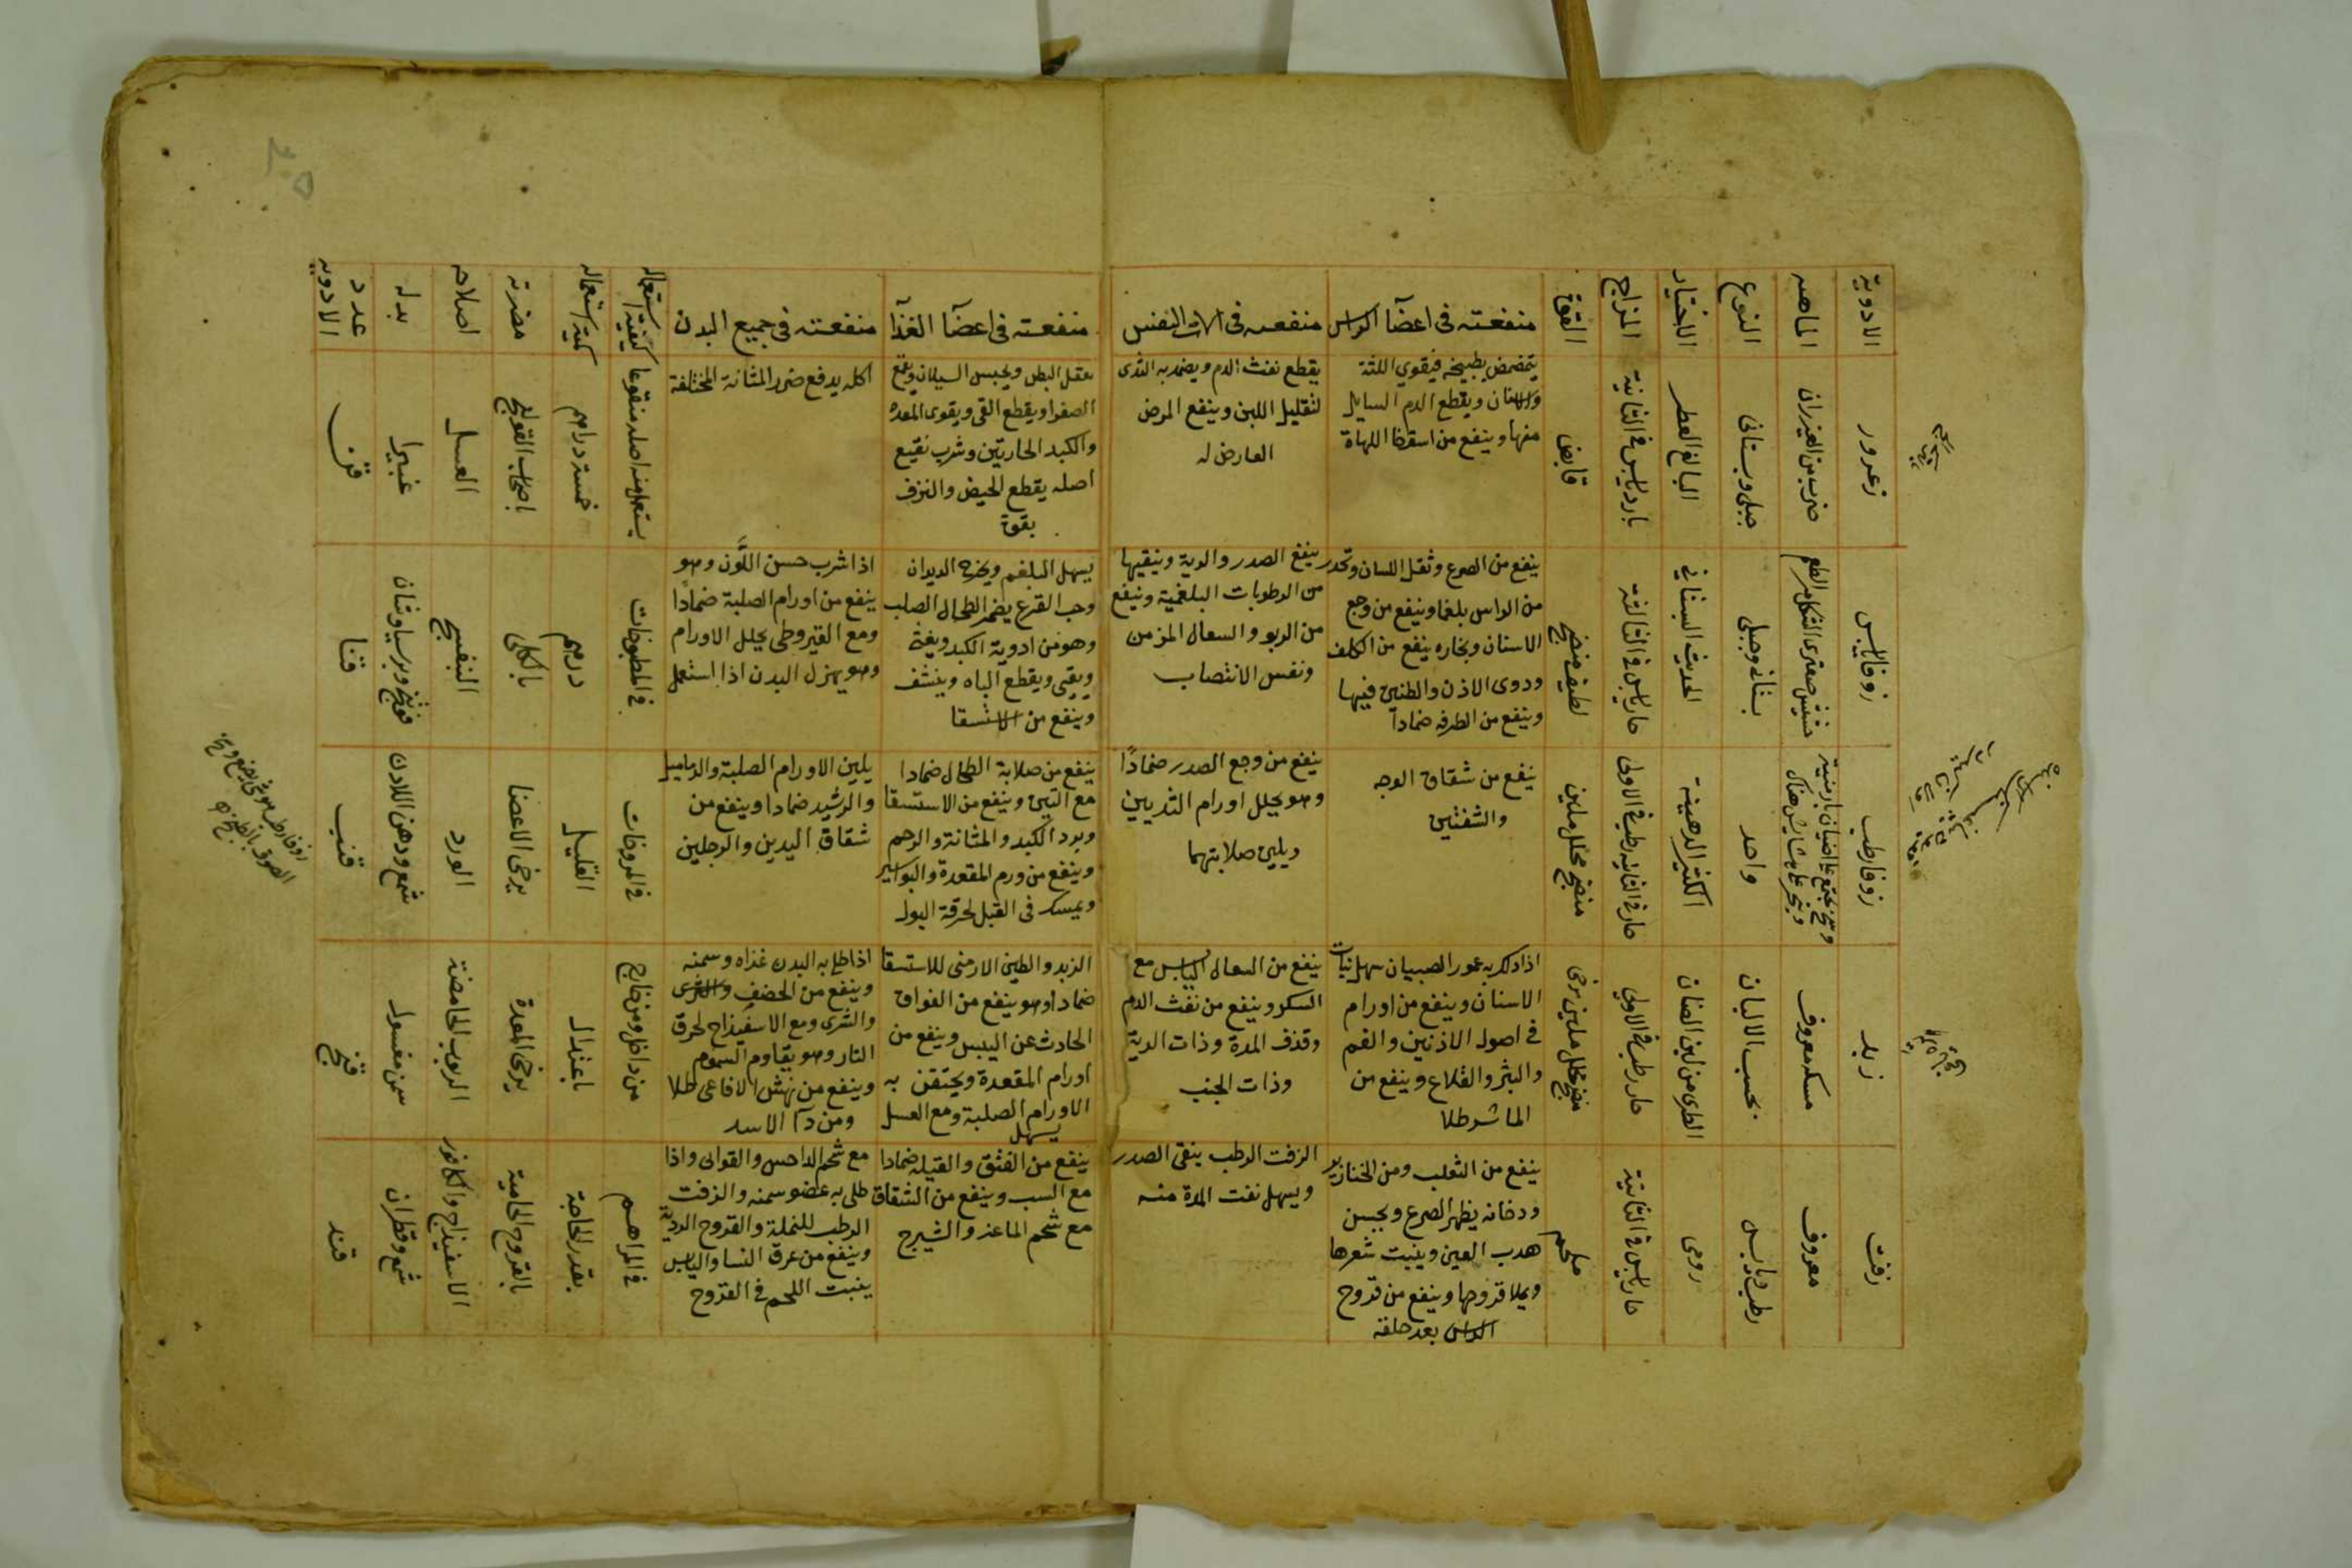 الادوية
الماهيه
النوع
الاختيار
المزاج
القوة
منفعته فى اعضآ الراس
منفعته فى الات النفس
منفعته فى اعضآ الغذآ
منفعته فى جميع البدن
كيفية استعماله
كمية استعماله
مضرته
اصلاحه
بدله
عدد الادويه
زعرور
ضرب من العيزران
جبلى وبستانى
البالغ العطر
بارد يابس فى الثانية
قابض
يتمضمض بطبيخه فيقوي اللثة
والاسنان ويقطع الدم السايل
منها وينفع من اسقط اللهاة
يقطع نفث الدم ويضمد به الثدى
لتقليل اللبن وينفع المرض
العارض له
يعقل البطن ويحبس السيلان ويقمع
الصفرا ويقطع القى ويقوى المعده
والكبد الحارتين وشرب نقيع
اصله يقطع الحيض والنزف
بقوة
اكله يدفع ضرر المثانة المختلفة
يستعمل منه اصله منقوعا
خمسة دراهم
باصحاب القولنج
العسل
غبيرا
زوفا يابس
حشيش صعترى الشكل مر الطعم
بستانى وجبلى
الحديث البستانى
حار يابس فى الثالثة
لطيف منضج
ينفع من الصرع وثقل اللسان وتحدر
من الراس بلغما وينفع من وجع
الاسنان وبخاره ينفع من الكلف
ودوى الاذن والطنين فيها
وينفع من الطرفه ضماداً
ينفع الصدر والرية وينقيها
من الرطوبات البلغمية وينفع
من الربو والسعال المزمن
ونفس الانتصاب
يسهل البلغم ويخرج الديدان
وحب القرع يضمر الطحال الصلب
وهو من ادوية الكبد ويغثى
ويقيى ويقطع الباه وينشف
وينفع من الاستسقا
اذا شرب حسن اللَّون وهو
ينفع من اورام الصلبة ضماداً
ومع القيروطى يحلل الاورام
وهو يهزل البدن اذا استعمل
فى المطبوخات
درهم
بالكلى
البنفسج
فوتنج وبرسياوشان
قثا
زوفا رطب
وسخ يجتمع على اضيان بارمنية
واحد
الكثير الدهنية
حار فى الثانيه رطب فى الاولى
منضج محلل ملين
ينفع من شقاق الوجه
والشفتين
ينفع من وجع الصدر ضماداً
وهو يحلل اورام الثديين
ويلين صلابتهما
ينفع من صلابة الطحال ضمادا
مع التين وينفع من الاستسقا
وبرد الكبد والمثانة والرحم
وينفع من ورم المقعدة والبواسير
ويمسك فى القبل لحرقة البول
يلين الاورام الصلبة والدماميل
ضمادا وينفع من
شقاق اليدين والرجلين
فى المروخات
القليل
يرخى الاعضا
الورد
شمع ودهن اللادن
قنب
زبد
مسكه معروف
بحسب الالبان
الطرى من لبن الضان
حار رطب فى الاولى
منضج محلل ملين مرخى
اذا دلك به عمور الصبيان سهل نبات
الاسنان وينفع من اورام
فى اصول الاذنين والفم
والبثر والقلاع وينفع من
الماشر طلا
ينفع من السعال اليابس مع
السكر وينفع من نفث الدم
وقذف المدة وذات الرية
وذات الجنب
الزبد والطين الارمنى للاستسقا
ضمادا وهو ينفع من الفواق
الحادث عن اليبس وينفع من
اورام المقعدة ويحتقن به
الاورام الصلبة ومع العسل
يسهل
اذا طلى به البدن غذاه وسمنه
وينفع من الحصف
والشرى ومع الاسفيذاج لحرق
النار وهو يقاوم السموم
وينفع من نهش الافاعى طلا
ومن دآ الاسد
من داخل ومن خارج
باعتدال
يرخى المعدة
الربوب الحامضة
سمن مغسول
زفت
معروف
رطب ويابس
رومى
حار يابس فى الثانية
ملحم
ينفع من الثعلب ومن الخنازير
ودخانه يظهر الصرع ويحسن
هدب العين وينبت شعرها
ويملا قروحها وينفع من قروح
الراس بعد حلقه
الزفت الرطب ينقى الصدر
ويسهل نفث المدة منه
ينفع من الفتق والقيله ضمادا
مع السب وينفع من الشقاق
مع شحم الماعز والشيرج
مع شحم الداحس والقوابى واذا
طلى به عضو سمنه والزفت
الرطب للنملة والقروح الردية
وينفع من عرق النسا واليابس
ينبت اللحم فى القروح
فى المراهم
بقدر الحاجة
بالقروح الحامية
الاسفيذاج والكافور
شمع وقطران
قند